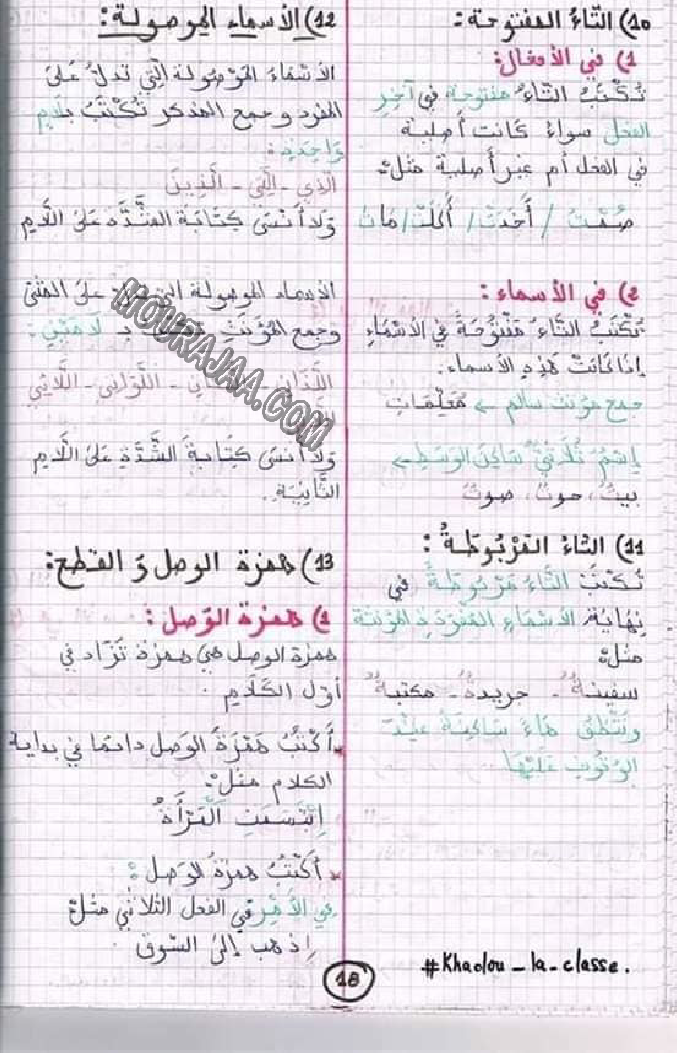 10) التّاءُ المفتوحة:
1) في الأفعال:
تُكْتَبُ التّاءُ مفتوحة في آخِرِ
الفعل سواءُ كانت أصلية
في الفعل أم غير أصلية مثل:
صُمْتُ / أَخَذَتْ / أَكَلَتْ / مَاتَ
2) في الأسماء:
تُكْتَبُ التّاءُ مَفْتُوحَةً في الأسْمَاءِ
إذا كانَتْ هَذِهِ الأسماء:
جمع مؤنث سالم ← مُعَلِّمَات
إِسْمٌ ثُلَاثِيٌّ سَاكِنُ الوَسَطِ ←
بيتٌ، حوتٌ، صوتٌ
11) التاءُ المَرْبُوطَةُ:
تُكْتَبُ التَّاءُ مَرْبُوطَةً في
نِهَايَةِ الأسْمَاءِ المُفْرَدَةِ المؤنثة
مثل:
سفينةٌ - جريدةٌ - مكتبةٌ
وتُنْطَقُ هَاءً سَاكِنَةً عِنْدَ
الوُقُوفِ عَلَيْهَا
12) الأسماء الموصولة:
الأسْمَاءُ المَوْصُولَة الّتِي تدلُّ عَلَى
المفرد وجمع المذكر تُكْتَبُ بلَامٍ
وَاحِدَةٍ:
الّذي - الّتِي - الَّذِينَ
وَلا أَنْسَى كِتَابَةَ الشَّدَّة عَلَى اللَّامِ
الأسماء الموصولة التي عَلَى المثنى
وجمع المؤنَّثِ بـ لَامَيْنِ:
اللَّذَانِ - اللَّوَاتِي - اللَّائِي
وَلا أنْسَى كِتَابَةَ الشَّدَّةِ عَلَى اللَّامِ
الثَّانِيَةِ.
13) همزة الوصل وَ القطع:
1) همزة الوَصل:
همزة الوصل هي همزة تُزَادُ في
أوّل الكَلَامِ.
* أَكْتُبُ هَمْزَةَ الوَصل دائمًا في بداية
الكلام مثل:
اِبْتَسَمَتِ المَرْأَةُ
* أَكْتُبُ همزةَ الوَصل:
في الأَمْرِ في الفعل الثلاثي مثل:
اِذهب إلى السّوق.
#Khaolou_la_classe.
18
MOURAJAA.COM